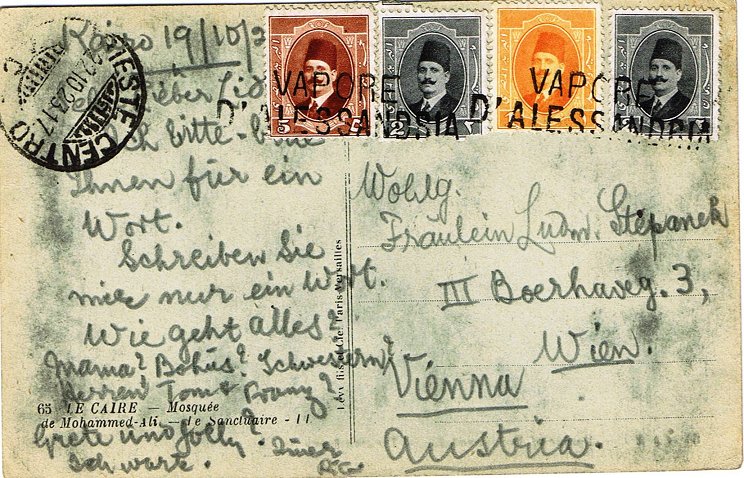 Kairo 19/10/2
TRIESTE CENTRO
22.10.23.17
VAPORE
D'ALESSANDRIA
VAPORE
D'ALESSANDRIA
5
2
1
Ich bitte
Ihnen für ein
Wort.
Schreiben Sie
mir nur ein Wort.
Wie geht alles?
Mama? Bohus? Schwestern?
Herren Tom & Franz?
Grete und Jolly?
Schwarz.
65 LE CAIRE — Mosquée
de Mohammed-Ali. — Le Sanctuaire - LL
Lévy fils et Cie. Paris-Versailles
Wohlg.
Fräulein Ludm. Stépanek
III Boerhaveg. 3,
Wien.
Vienna
Austria.